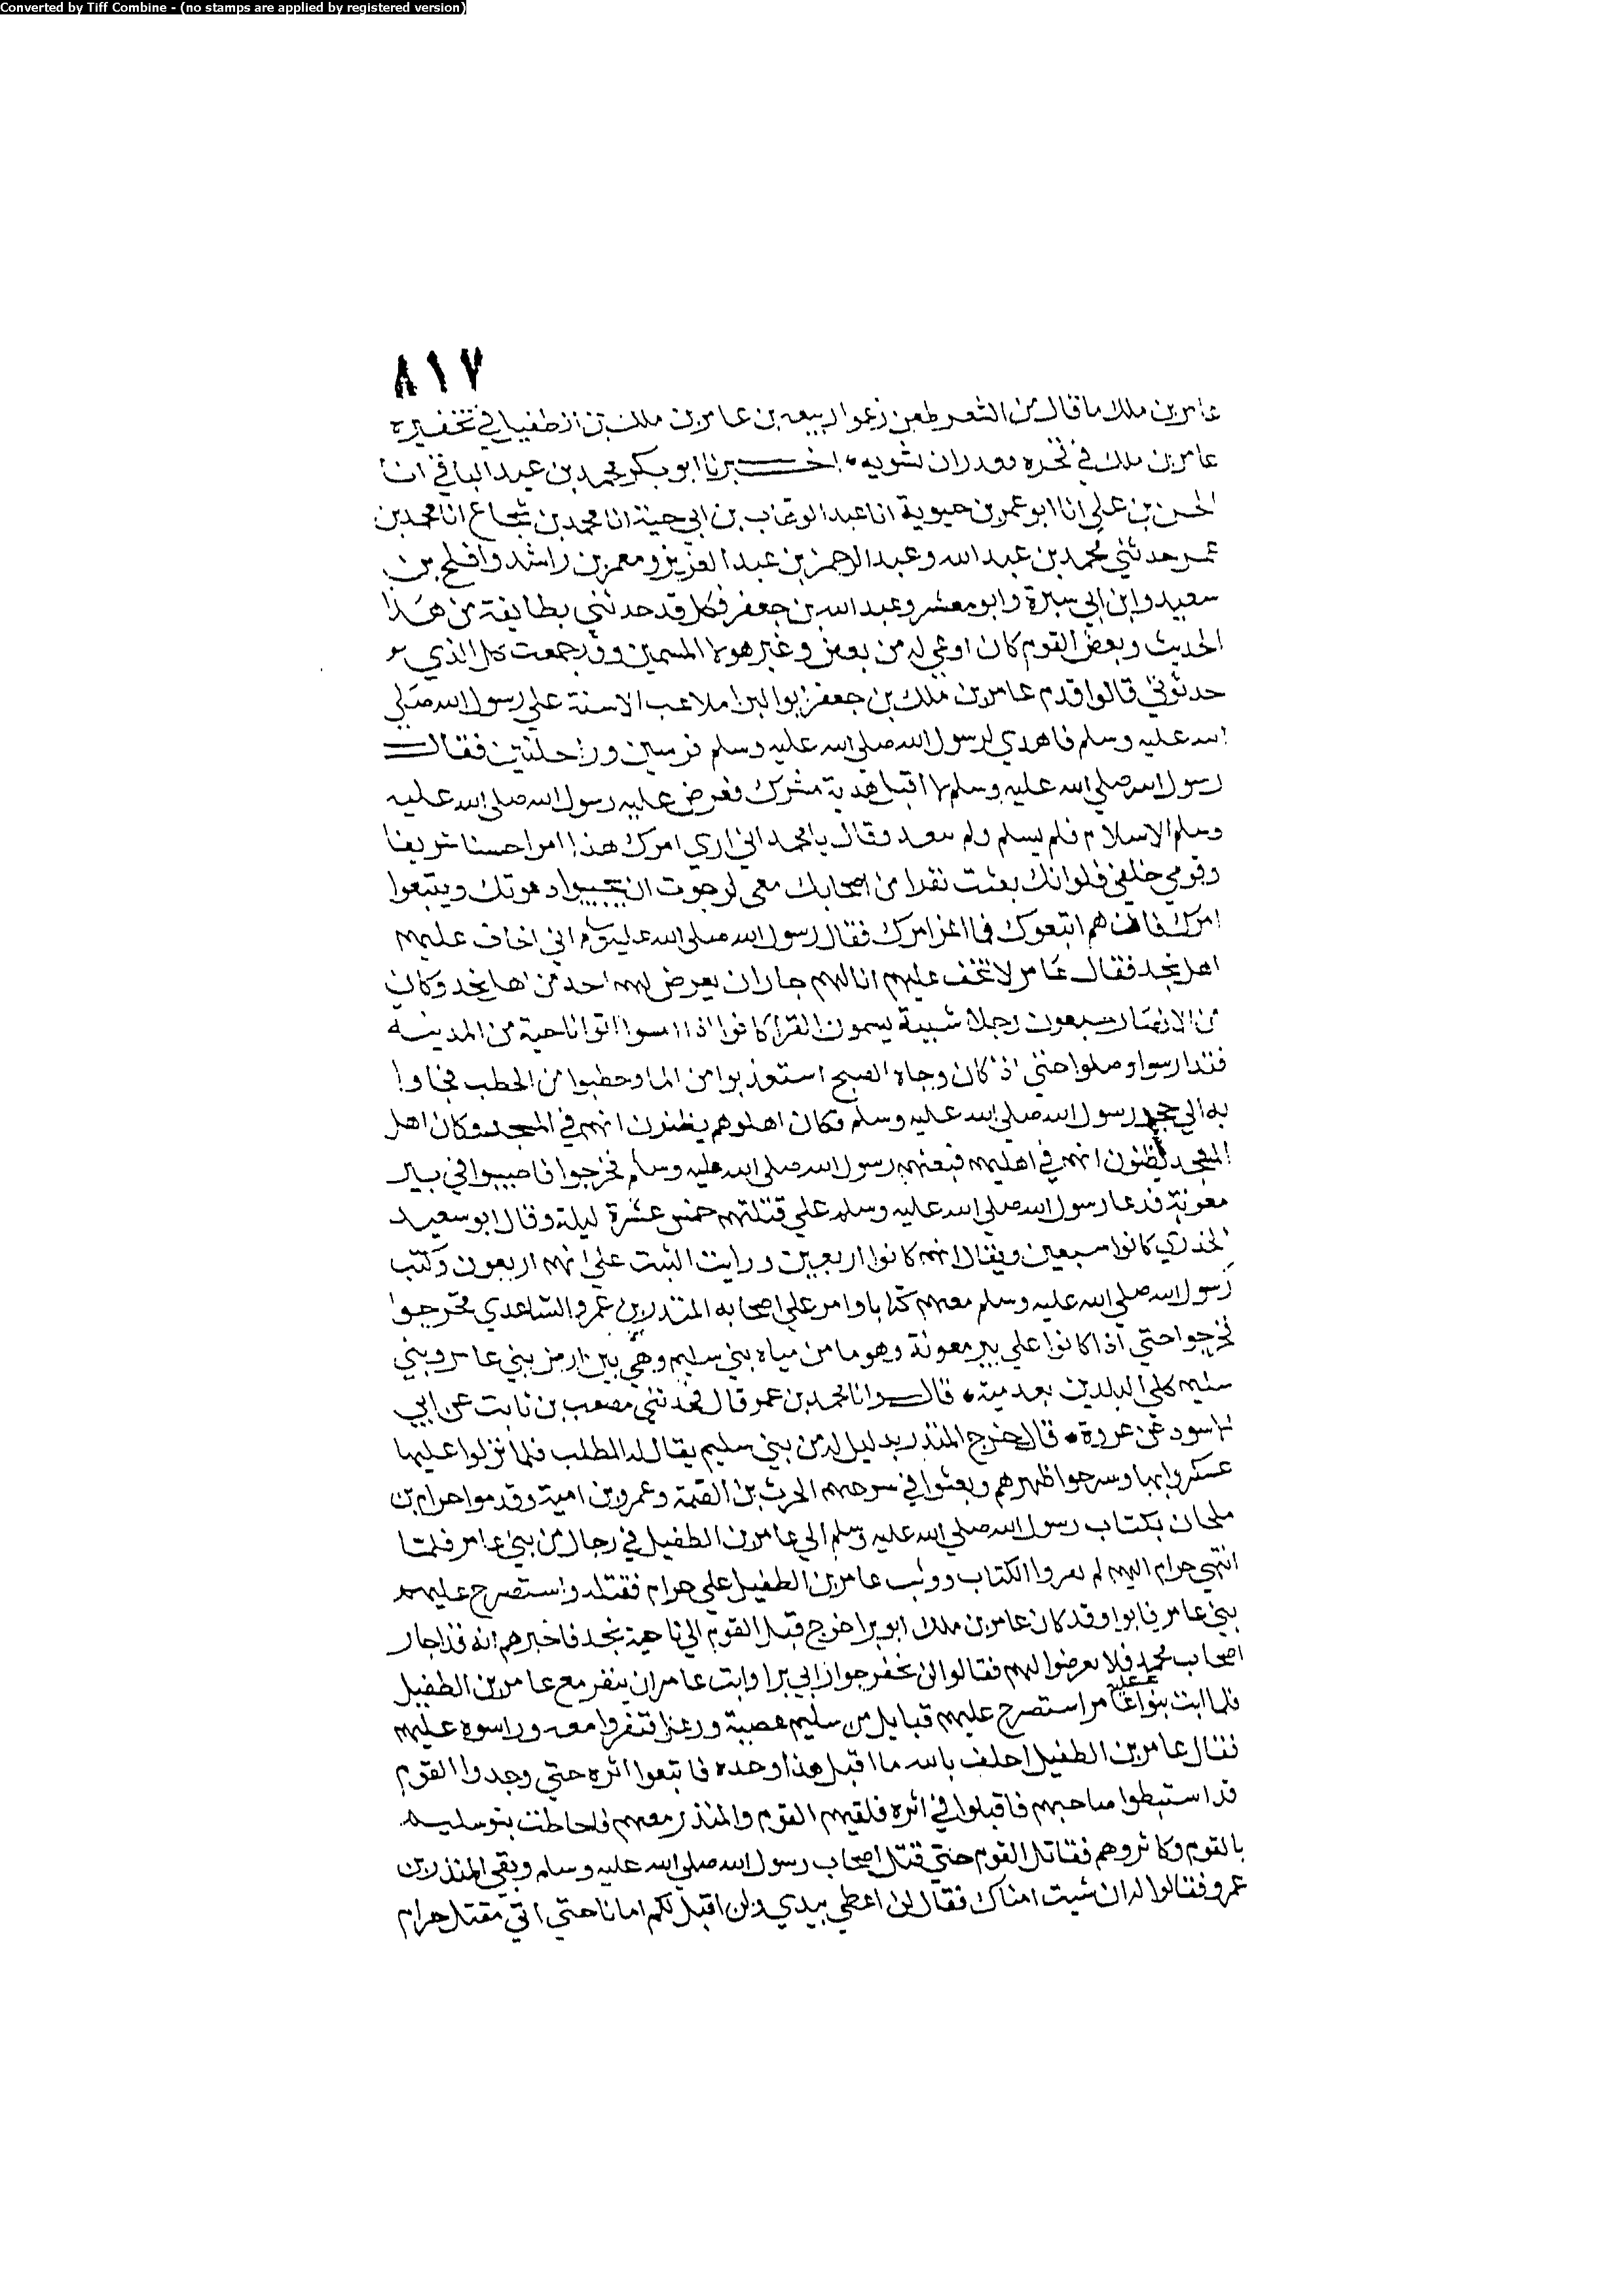 Converted by Tiff Combine - (no stamps are applied by registered version)
٨١٧
عامر بن ملك ما قال من الشعر طعن زعموا ربيعه بن عامر بن ملك بن الطفيل في تخفيره
عامر بن ملك في نحره اخبرنا ابو بكر محمد بن عبد الباقي انا
الحسن بن علي انا ابو عمر بن حيوية انا عبد الوهاب بن ابي حية انا محمد بن شجاع انا محمد بن
عمر حدثني محمد بن عبد الله وعبد الرحمن بن عبد العزيز ومعمر بن راشد وافلح بن
سعيد وابن ابي سبرة وابو معشر وعبد الله بن جعفر فكل قد حدثني بطايفة من هذا
الحديث وبعض القوم كان اوعى له من بعض وغير هولا المسمين وقد جمعت كل الذي
حدثوني قالوا قدم عامر بن ملك بن جعفر ابو البرا ملاعب الاسنة علي رسول الله صلي
الله عليه وسلم فاهدي لرسول الله صلي الله عليه وسلم فرسين وراحلتين فقال
رسول الله صلي الله عليه وسلم لا اقبل هدية مشرك فعرض عليه رسول الله صلي الله عليه
وسلم الاسلام فلم يسلم ولم يبعد وقال يا محمد اني اري امرك هذا امرا حسنا شريفا
وقومي خلفي فلو انك بعثت نفرا من اصحابك معي لرجوت ان يجيبوا دعوتك ويتبعوا
امرك فان هم اتبعوك فما اعز امرك فقال رسول الله صلي الله عليه وسلم اني اخاف عليهم
اهل نجد فقال عامر لا تخف عليهم انا لهم جار ان يعرض لهم احد من اهل نجد وكان
من الانصار سبعون رجلا شببة يسمون القرا كانوا اذا امسوا اتوا ناحية من المدينه
فتدارسوا وصلوا حتي اذا كان وجاه الصبح استعذبوا من الما وحطبوا من الحطب فجاوا
به الي حجر رسول الله صلي الله عليه وسلم وكان اهلوهم يظنون انهم في المسجد وكان اهل
المسجد يظنون انهم في اهليهم فبعثهم رسول الله صلي الله عليه وسلم فخرجوا فاصيبوا في بير
معونة فدعا رسول الله صلي الله عليه وسلم علي قتلتهم خمس عشرة ليلة وقال ابو سعيد
الخدري كانوا سبعين ويقال انهم كانوا اربعين ورايت الثبت علي انهم اربعون وكتب
رسول الله صلي الله عليه وسلم معهم كتابا وامر علي اصحابه المنذر بن عمرو الساعدي فخرجوا
فخرجوا حتي اذا كانوا علي بير معونة وهو ما من مياه بني سليم وهي بين ارض بني عامر وبني
سليم كلي البلدين بعد منه قال وانا محمد بن عمر قال فحدثني مصعب بن ثابت عن ابي
الاسود عن عروة قال خرج المنذر بدليل له من بني سليم يقال له المطلب فلما نزلوا عليها
عسكروا بها وسرحوا ظهرهم وبعثوا في سرحهم الحرث بن الصمة وعمرو بن امية وقدموا حرام بن
ملحان بكتاب رسول الله صلي الله عليه وسلم الي عامر بن الطفيل في رجال من بني عامر فلما
انتهي حرام اليهم لم يقروا الكتاب ووثب عامر بن الطفيل علي حرام فقتله واستصرخ عليهم
بني عامر فابوا وقد كان عامر بن ملك ابو برا خرج قبل القوم الي ناحية نجد فاخبرهم انه قد اجار
اصحاب محمد فلا يعرضوا لهم فقالوا لن نخفر جوار ابي برا وابت عامر ان ينفر مع عامر بن الطفيل
فلما ابت عليه بنوا عامر استصرخ عليهم قبايل من سليم عصية ورعلا فنفروا معه وراسوه عليهم
فقال عامر بن الطفيل احلف بالله ما اقبل هذا وحده فاتبعوا اثره حتي وجدوا القوم
قد استبطوا صاحبهم فاقبلوا في اثره فلقيهم القوم والمنذر معهم فاحاطت بنو سليم
بالقوم وكاثروهم فقاتل القوم حتي قتل اصحاب رسول الله صلي الله عليه وسلم وبقي المنذر بن
عمرو فقالوا له ان شيت امناك فقال لن اعطي بيدي ولن اقبل لكم امانا حتي اتي مقتل حرام